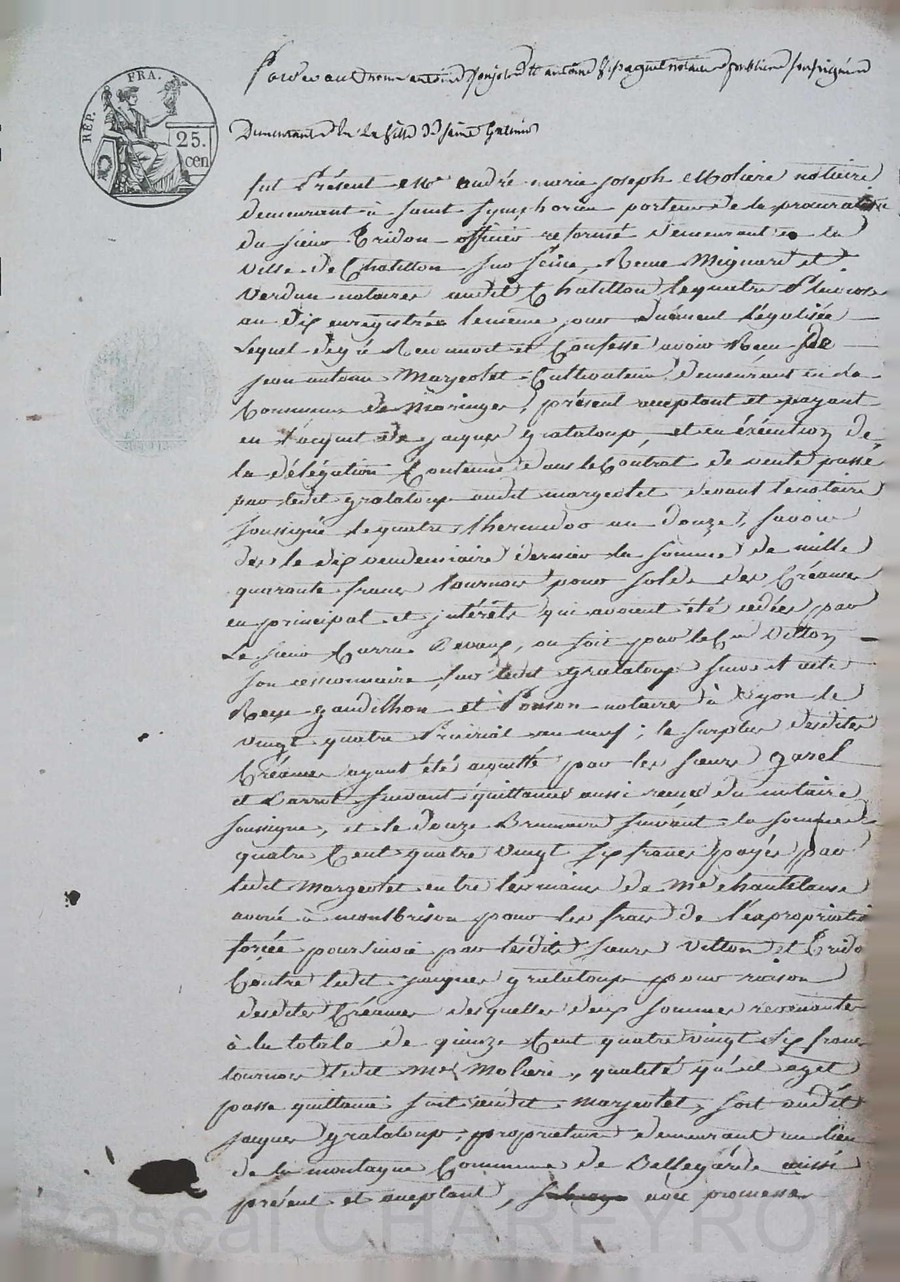 RÉP. FRA.
25.
cen
Pardevant antoine notaire public soussigné
Demeurant en la Ville de saint Galmier
fut Présent Mre andré marie joseph Moliere notaire
demeurant à saint symphorien porteur de la procuration
du sieur Tridon officier reformé demeurant en la
ville de Chatillon sur seine, Recue Mignard et
Verdun notaires audit Chatillon le quatre Pluviose
an dix enregistrée le meme jour duement légalisée
Lequel de gré Reconnoit et Confesse avoir Recu de
jean antoine Margeolet Cultivateur demeurant en la
Commune de Maringes, présent acceptant et payant
en l'acquit de jacques grataloup, et en exécution de
la délégation Contenue dans le Contrat de vente passé
par ledit grataloup audit margeolet devant le notaire
soussigné le quatre thermidor an douze, savoir
des le dix vendemiaire dernier la somme de mille
quarante francs tournois pour solde des Créances
en principal et intérêts qui avoient été cedées par
Le sieur Carra ou soit par le Cen Vitton
son cessionnaire, sur ledit grataloup suivt acte
Recu gaudilhon et Ponson notaires à Lyon le
vingt quatre Prairial an neuf; le surplus desdites
Créances ayant été acquitté par les sieurs garel
et Larrot suivant quittances aussi recues du notaire
soussigné, et le douze Brumaire suivant la somme de
quatre Cent quatre vingt six francs payés par
ledit Margeolet entre les mains de Me chantelause
avoué à montbrison pour les frais de l'expropriation
forcée poursuivie par lesdits sieurs Vitton et Tridon
Contre ledit jacques grataloup pour raison
desdites Créances desquelles deux sommes revenantes
à la totale de quinze Cent quatre vingt six francs
tournois ledit Mre Moliere, qualité qu'il agit
passe quittance soit audit margeolet, soit audit
jacques grataloup, propriétaire demeurant au lieu
de la montagne Commune de Bellegarde aussi
présent et acceptant, avec promesse
Pascal CHAREYRON